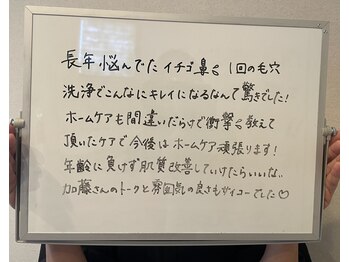 長年悩んでたイチゴ鼻。1回の毛穴
洗浄でこんなにキレイになるなんて驚きでした!
ホームケアも間違いだらけで衝撃。教えて
頂いたケアで今後はホームケア頑張ります!
年齢に負けず肌質改善していけたらいいな。。
加藤さんのトークと雰囲気の良さもサイコーでした♡